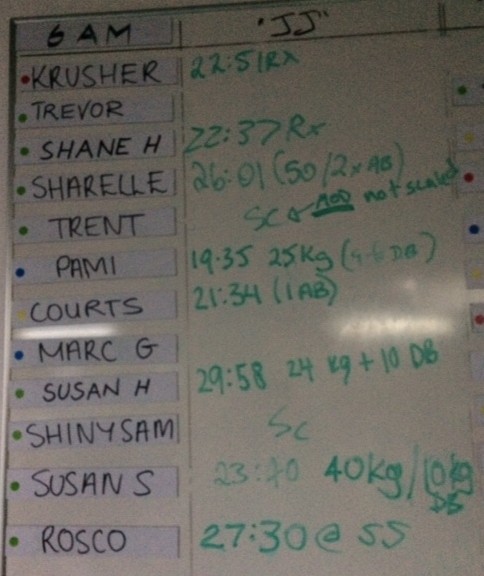 6AM "JJ"
KRUSHER 22:51 RX
TREVOR
SHANE H 22:37 Rx
SHARELLE 26:01 (50/2xAB)
TRENT SC MOD not scaled
PAMI 19:35 25Kg DB)
COURTS 21:34 (1AB)
MARC G
SUSAN H 29:58 24 kg + 10 DB
SHINYSAM SC
SUSAN S 40kg/10kg DB
ROSCO 27:30 @ 55